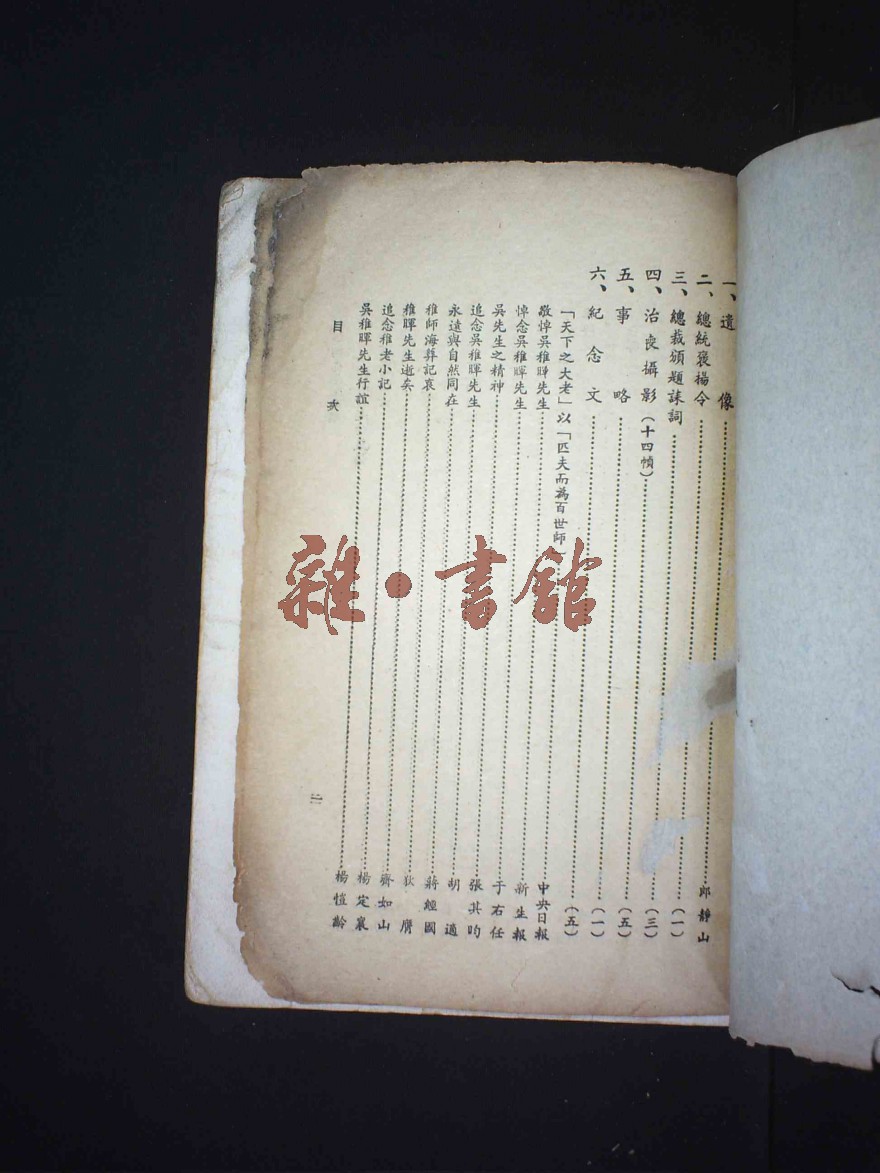 一、遺像……郎靜山
二、總統褒揚令……(一)
三、總裁頒題誄詞……(三)
四、治喪攝影(十四幀)……(五)
五、事略……(一)
六、紀念文……(五)
「天下之大老」以「匹夫而為百世師」……中央日報
敬悼吳稚暉先生……新生報
悼念吳稚暉先生……于右任
吳先生之精神……張其昀
追念吳稚暉先生……胡適
永遠與自然同在……蔣經國
稚師海葬記哀……狄膺
稚暉先生逝矣……齊如山
追念稚老小記……楊定襄
吳稚暉先生行誼……楊愷齡
目次
雜·書館